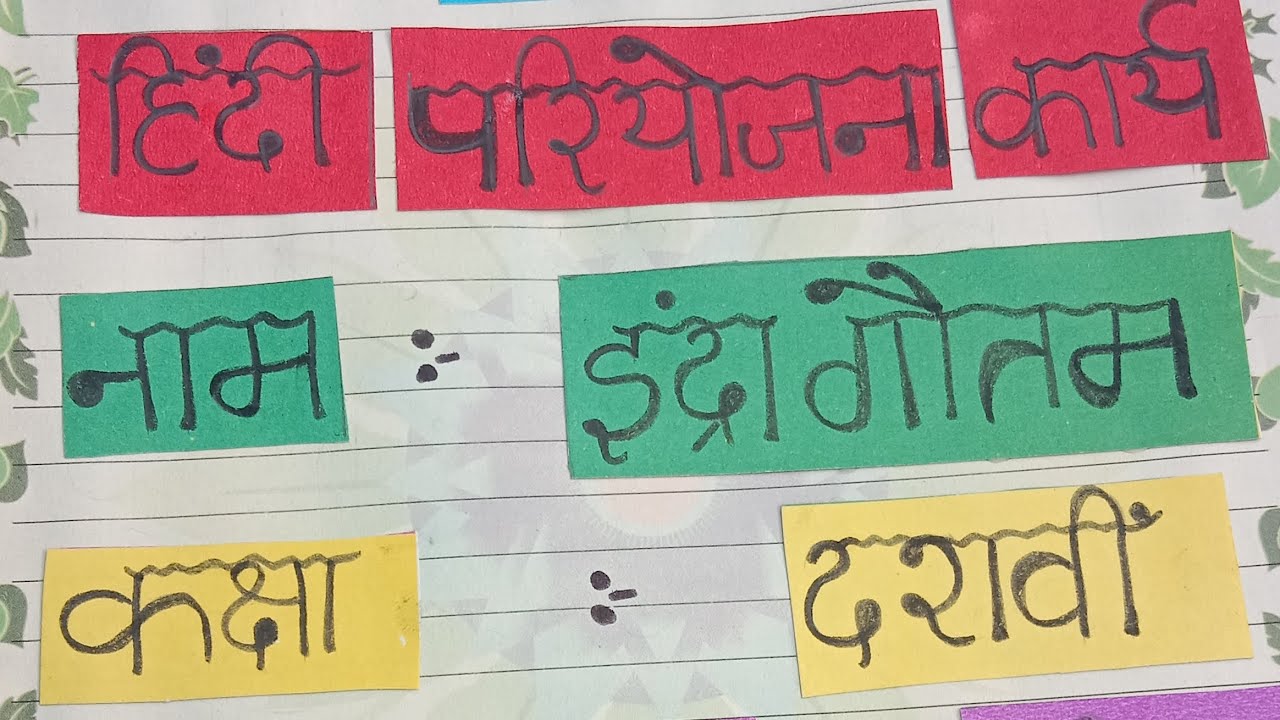 हिंदी परियोजना कार्य
नाम :- इंद्रा गौतम
कक्षा :- दशवीं